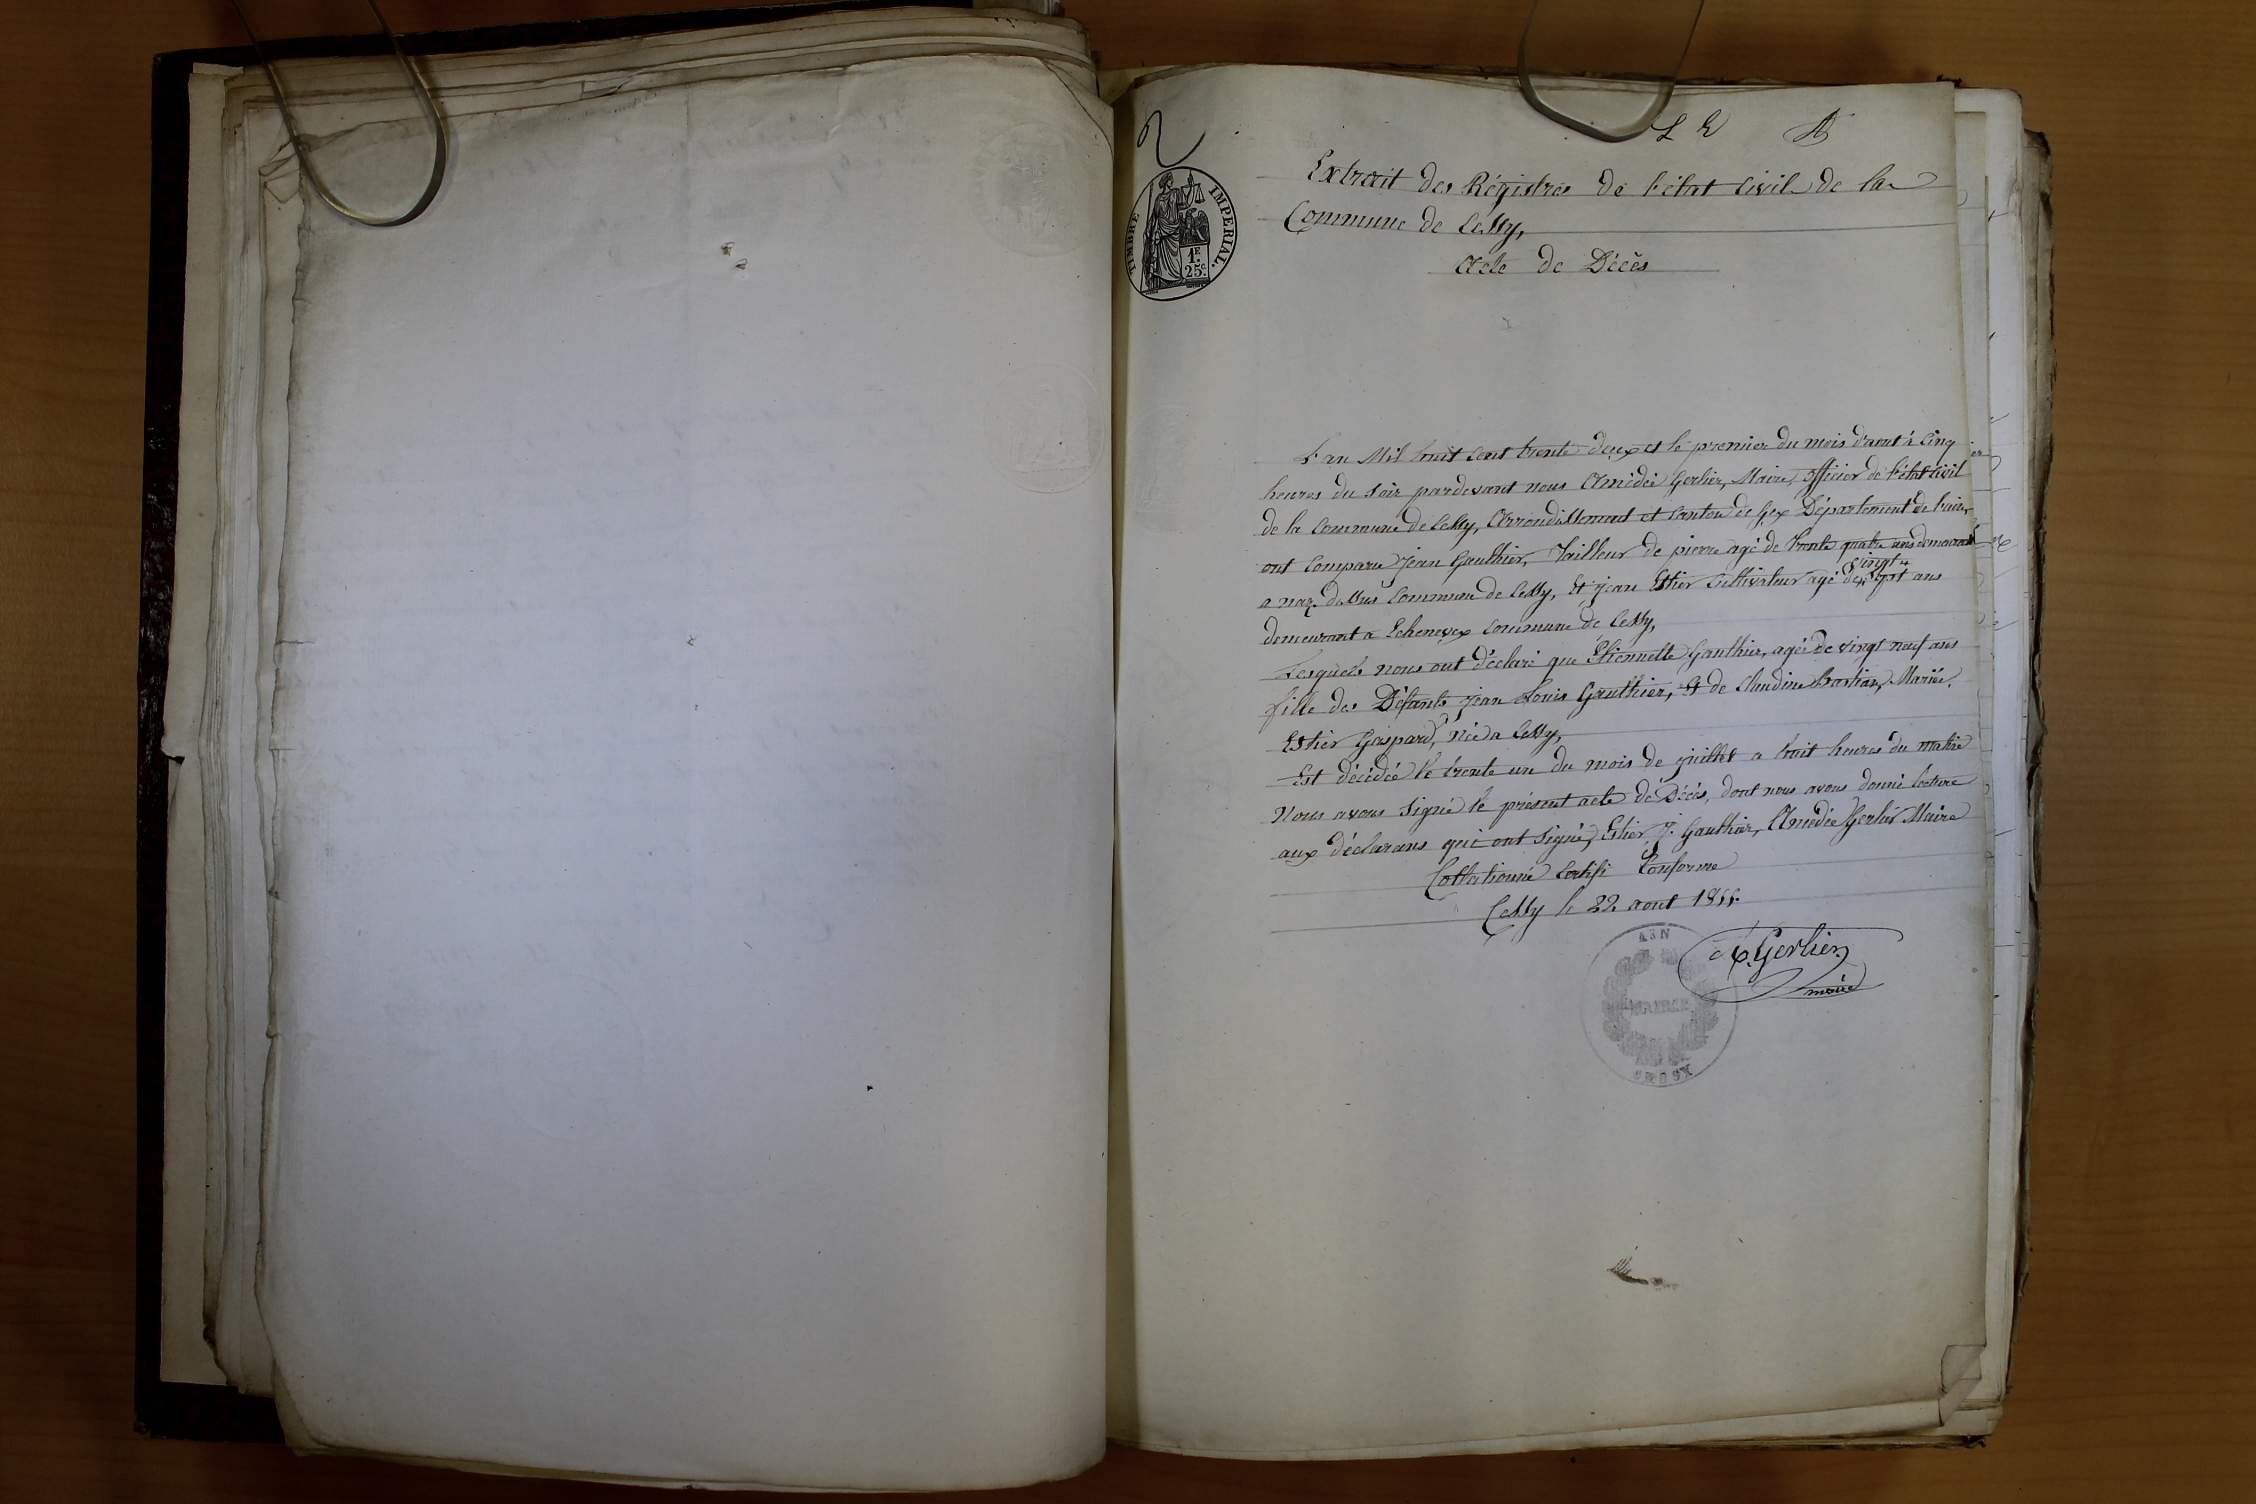 2
L E
TIMBRE IMPERIAL.
1F.
25c.
Extrait des Régistres de l'état Civil de la
Commune de Cessy,
Acte de Décès
L'an Mil huit cent trente deux et le premier du mois d'aout à cinq
heures du soir pardevant nous Amédée Gerlier, Maire, officier de l'état Civil
de la commune de Cessy, Arrondissement et canton de Gex Département de l'ain
ont comparu Jean Gauthier, Tailleur de pierre agé de trente quatre ans demeurant
a naz dessus commune de Cessy, Et jean Estier cultivateur agé de vingt sept ans
demeurant a Echenevex commune de Cessy,
Lesquels nous ont déclaré que Etiennette Gauthier, agée de vingt neuf ans
fille des Défants jean Louis Gauthier, Et de Claudine Bastian, Mariée.
Estier Gaspard, née a Cessy,
Est décédée le trente un du mois de juillet a huit heures du matin
Nous avons signé le présent acte de Décès, dont nous avons donné lecture
aux déclarans qui ont signé, Estier, J. Gauthier, Amedée Gerlier Maire
Collationné certifi Conforme
Cessy le 22 aout 1855.
AIN
Gerlier
maire
MAIRIE